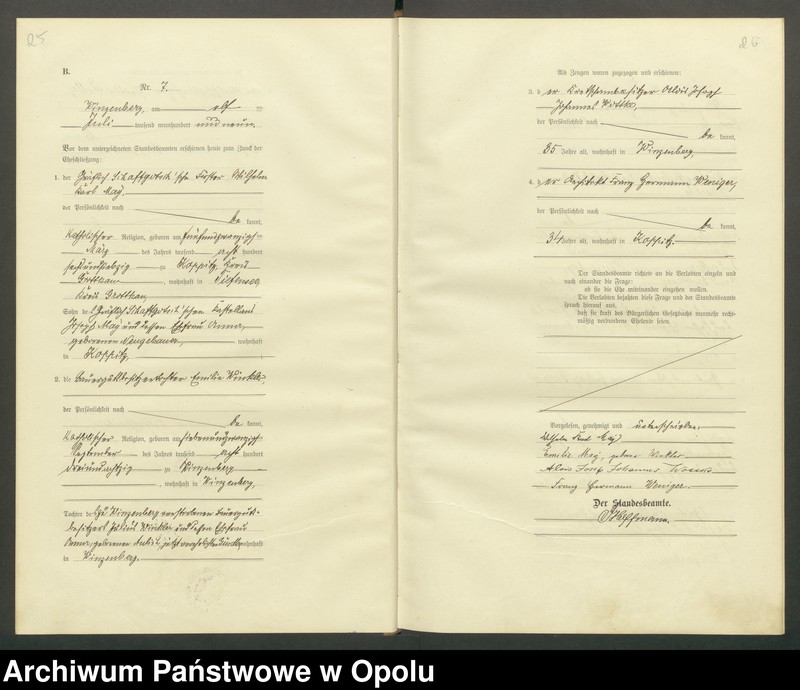 25
B.
Nr. 7.
Winzenberg, am elf
Juli tausend neunhundert und neun.
Vor dem unterzeichneten Standesbeamten erschienen heute zum Zweck der
Eheschließung:
1. der Gräflich Schaffgotsch'sche Förster Wilhelm
Karl May,
der Persönlichkeit nach
be kannt,
katholischer Religion, geboren am fünfundzwanzig
März des Jahres tausend acht hundert
sechsundsiebzig zu Koppitz, Kreis
Grottkau, wohnhaft in
Kreis Grottkau,
Sohn des Gräflich Schaffgotsch'schen Kastellans
Joseph May und dessen Ehefrau Anna,
geborenen Neugebauer, wohnhaft
in Koppitz,
2. die Bauergutsbesitzerstochter Emilie Winkler,
der Persönlichkeit nach
be kannt,
katholischer Religion, geboren am siebenundzwanzig
September des Jahres tausend acht hundert
dreiundachtzig zu Winzenberg
, wohnhaft in Winzenberg,
Tochter des zu Winzenberg verstorbenen Bauerguts-
besitzers Julius Winkler und dessen Ehefrau
Anna, geborenen jetzt verehelichten wohnhaft
in Winzenberg.
26
Als Zeugen waren zugezogen und erschienen:
3. der Kretschambesitzer Alois Joseph
Johannes Wittke,
der Persönlichkeit nach
be kannt,
35 Jahre alt, wohnhaft in Winzenberg,
4. der Architekt Franz Hermann Weniger,
der Persönlichkeit nach
be kannt,
34 Jahre alt, wohnhaft in Koppitz.
Der Standesbeamte richtete an die Verlobten einzeln und
nach einander die Frage:
ob sie die Ehe miteinander eingehen wollen.
Die Verlobten bejahten diese Frage und der Standesbeamte
sprach hierauf aus,
daß sie kraft des Bürgerlichen Gesetzbuchs nunmehr recht-
mäßig verbundene Eheleute seien.
Vorgelesen, genehmigt und unterschrieben.
Wilhelm Karl May
Emilie May, geborne Winkler
Alois Josef Johannes
Franz Hermann Weniger.
Der Standesbeamte.
Hoffmann.
Archiwum Państwowe w Opolu